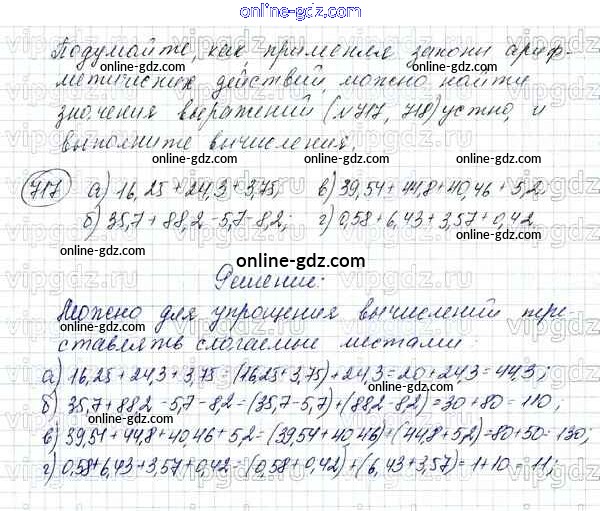 online-gdz.com
Подумайте, как, применяя законы ариф-
метических действий, можно найти
значения выражений (№717, 718) устно, и
выполните вычисления.
online-gdz.com online-gdz.com
717 а) 16,25 + 24,3 + 3,75; в) 39,54 + 44,8 + 40,46 + 5,2
online-gdz.com
б) 35,7 + 88,2 - 5,7 - 8,2; г) 0,58 + 6,43 + 3,57 + 0,42.
online-gdz.com online-gdz.com
online-gdz.com
Решение:
Можно для упрощения вычислений пере-
ставлять слагаемые местами:
online-gdz.com
а) 16,25 + 24,3 + 3,75 = (16,25 + 3,75) + 24,3 = 20 + 24,3 = 44,3;
online-gdz.com
б) 35,7 + 88,2 - 5,7 - 8,2 = (35,7 - 5,7) + (88,2 - 8,2) = 30 + 80 = 110,
online-gdz.com
в) 39,54 + 44,8 + 40,46 + 5,2 = (39,54 + 40,46) + (44,8 + 5,2) = 80 + 50 = 130;
online-gdz.com online-gdz.com
г) 0,58 + 6,43 + 3,57 + 0,42 = (0,58 + 0,42) + (6,43 + 3,57) = 1 + 10 = 11;
online-gdz.com